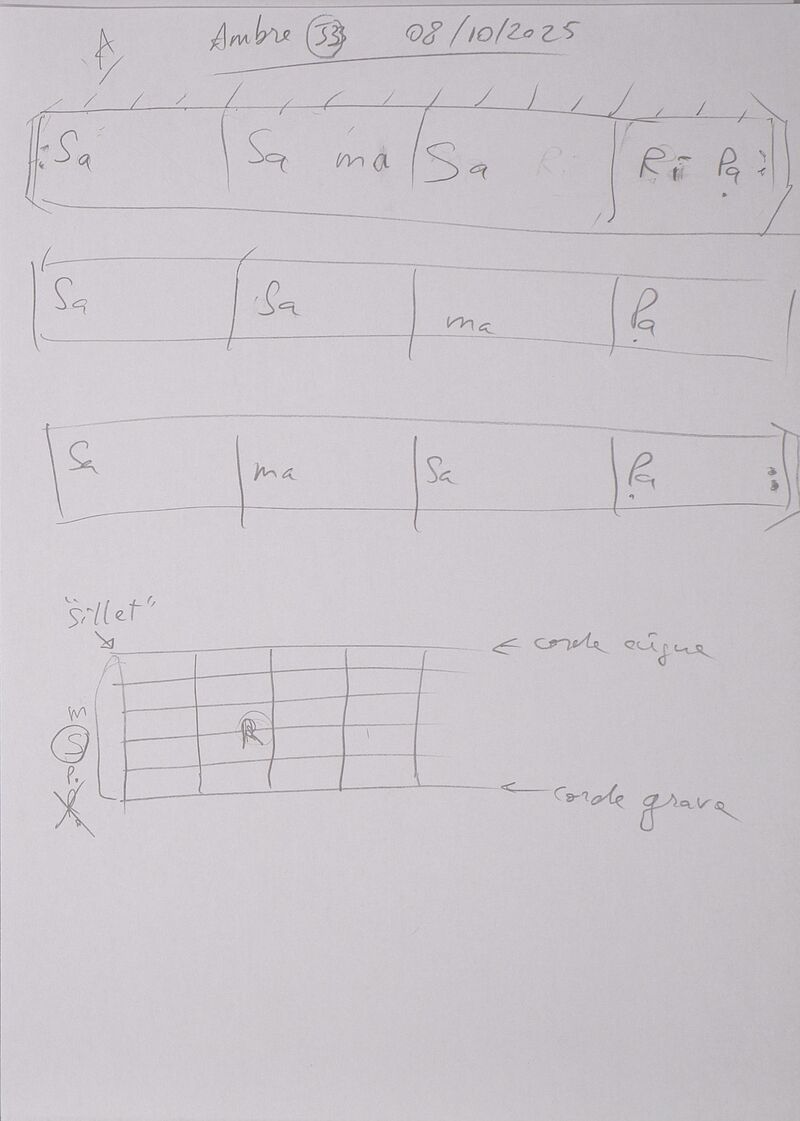 A Ambre 08/10/2025
Sa Sa ma Sa Ri Ri Pa
Sa Sa ma Pa
Sa ma Sa Pa
"Sillet"
corde aigue
m
S R
P
corde grave